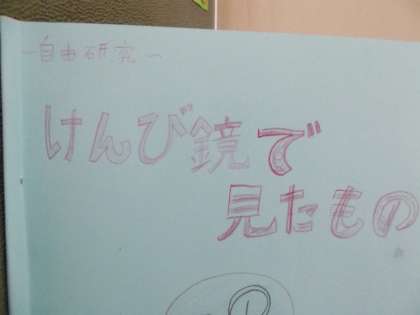 〜自由研究〜
けんび鏡で
見たもの